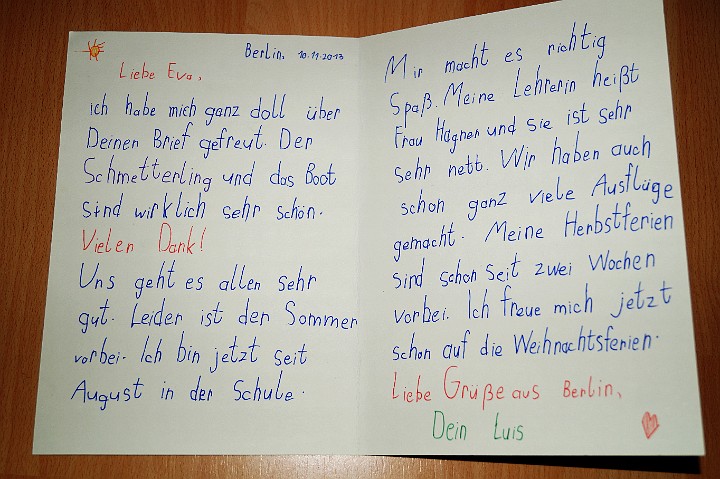 Berlin, 10.11.2013
Liebe Eva,
ich habe mich ganz doll über
Deinen Brief gefreut. Der
Schmetterling und das Boot
sind wirklich sehr schön.
Vielen Dank!
Uns geht es allen sehr
gut. Leider ist der Sommer
vorbei. Ich bin jetzt seit
August in der Schule.
Mir macht es richtig
Spaß. Meine Lehrerin heißt
Frau Hagner und sie ist sehr
sehr nett. Wir haben auch
schon ganz viele Ausflüge
gemacht. Meine Herbstferien
sind schon seit zwei Wochen
vorbei. Ich freue mich jetzt
schon auf die Weihnachtsferien.
Liebe Grüße aus Berlin,
Dein Luis